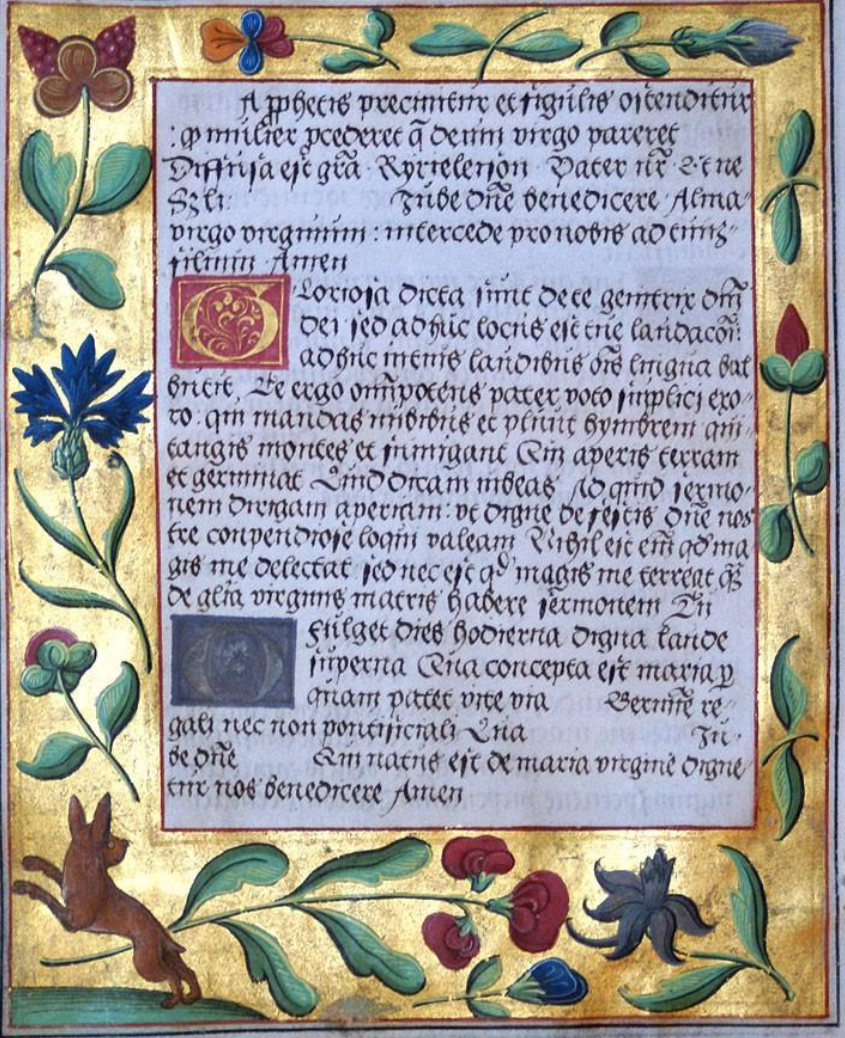 A pphetis precinitur et figulis ostenditur
: qp mulier pcederet q̄ deum virgo pareret
Diffusa est grā Kyrieleyson Pater nr̄ Et ne
Iube dn̄e benedicere Alma
virgo virginum : intercede pro nobis ad tuuȝ
filium Amen
Gloriosa dicta sunt de te genitrix dn̄i
dei sed adhuc locus est tue laudacōi:
adhuc intuis laudibus oīs lingua bal
butit, Te ergo omīpotens pater voto supplici exo
ro: qui mandas nubibus et pluut hymbrem qui
tangis montes et fumigant Qui aperis terram
et germinat Quid dicam iubeas Ad quid sermo
nem dirigam aperiam: vt digne de festis dn̄e nos
tre conpendiose loqui valeam Nihil est em̄ qd ma
gis me delectat sed nec est qd magis me terreat
de glīa virginis matris habere sermonem Tu
Fulget dies hodierna digna laude
superna Qua concepta est maria p
quam patet vite via Germīe re
gali nec non pontificiali Qua Iu
be dn̄e Qui natus est de maria virgine digne
tur nos benedicere Amen